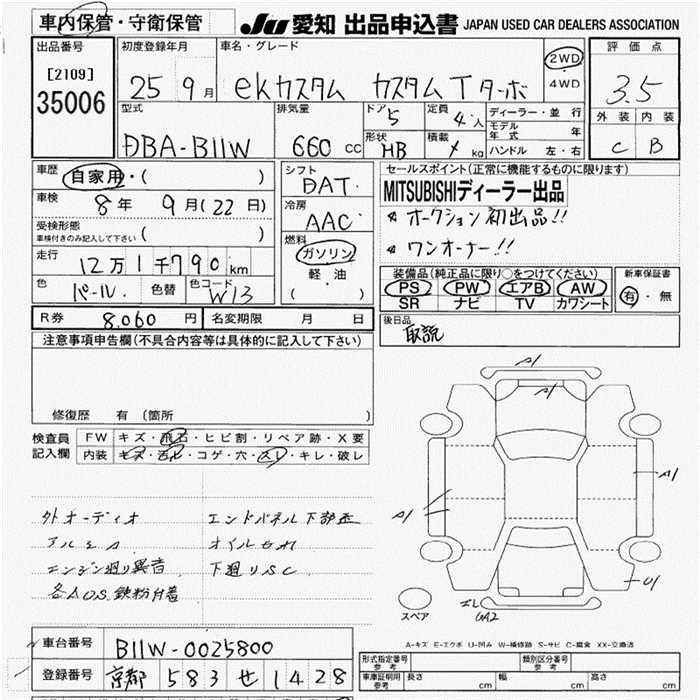 車内保管・守衛保管 JU 愛知 出品申込書 JAPAN USED CAR DEALERS ASSOCIATION
出品番号 初度登録年月 車名・グレード 評価点
[2109]
35006
25 9月 ekカスタム カスタムT ターボ 2WD・4WD 3.5
型式 排気量 ドア 定員 ディーラー・並行 外装 内装
DBA-B11W 660 CC 5 4人 モデル年式 年 C B
形状 HB 積載 kg ハンドル 左・右
車歴 自家用・( ) シフト DAT セールスポイント(正常に機能するものに限ります)
車検 8年 9月(22日) 冷房 AAC MITSUBISHIディーラー出品
受検形態 車検付きのみ記入して下さい ( ) オークション初出品!!
燃料 ガソリン・軽油 ( ) ワンオーナー!!
走行 12万1千790km
色 パール 色替 色コード W13
装備品(純正品に限り○をつけてください) 新車保証書
PS PW エアB AW 有・無
SR ナビ TV カワシート
R券 8.060円 名変期限 月 日
後日品 取説
注意事項申告欄(不具合内容等は具体的に記入して下さい)
修復歴 有 (箇所 )
検査員記入欄 FW キズ・飛石・ヒビ割・リペア跡・X要
内装 キズ・汚れ・コゲ・穴・スレ・キレ・破レ
A1
A1
A1
A1
U1
外オーディオ エンドパネル下部歪
アルミA オイルもれ
エンジン廻り異音 下廻りSC
各AOS.鉄粉付着
スペア GA2
A-キズ E-エクボ U-凹み W-補修跡 S-サビ C-腐食 XX-交換済
車台番号 B11W-0025800
登録番号 京都 583 せ 1428
形式指定番号 参考 類別区分番号 参考
車庫証明用 参考 長さ cm 幅 cm 高さ cm